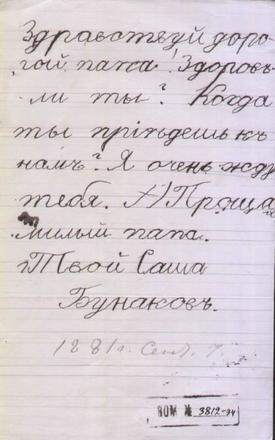 Здравствуй доро-
гой папа! Здоровъ
ли ты? Когда
ты пріѣдешь къ
намъ? Я очень жду
тебя. Проща
милый папа.
Твой Саша
Бунаковъ.
1881г. Сент.
ВОМ № 3812-94